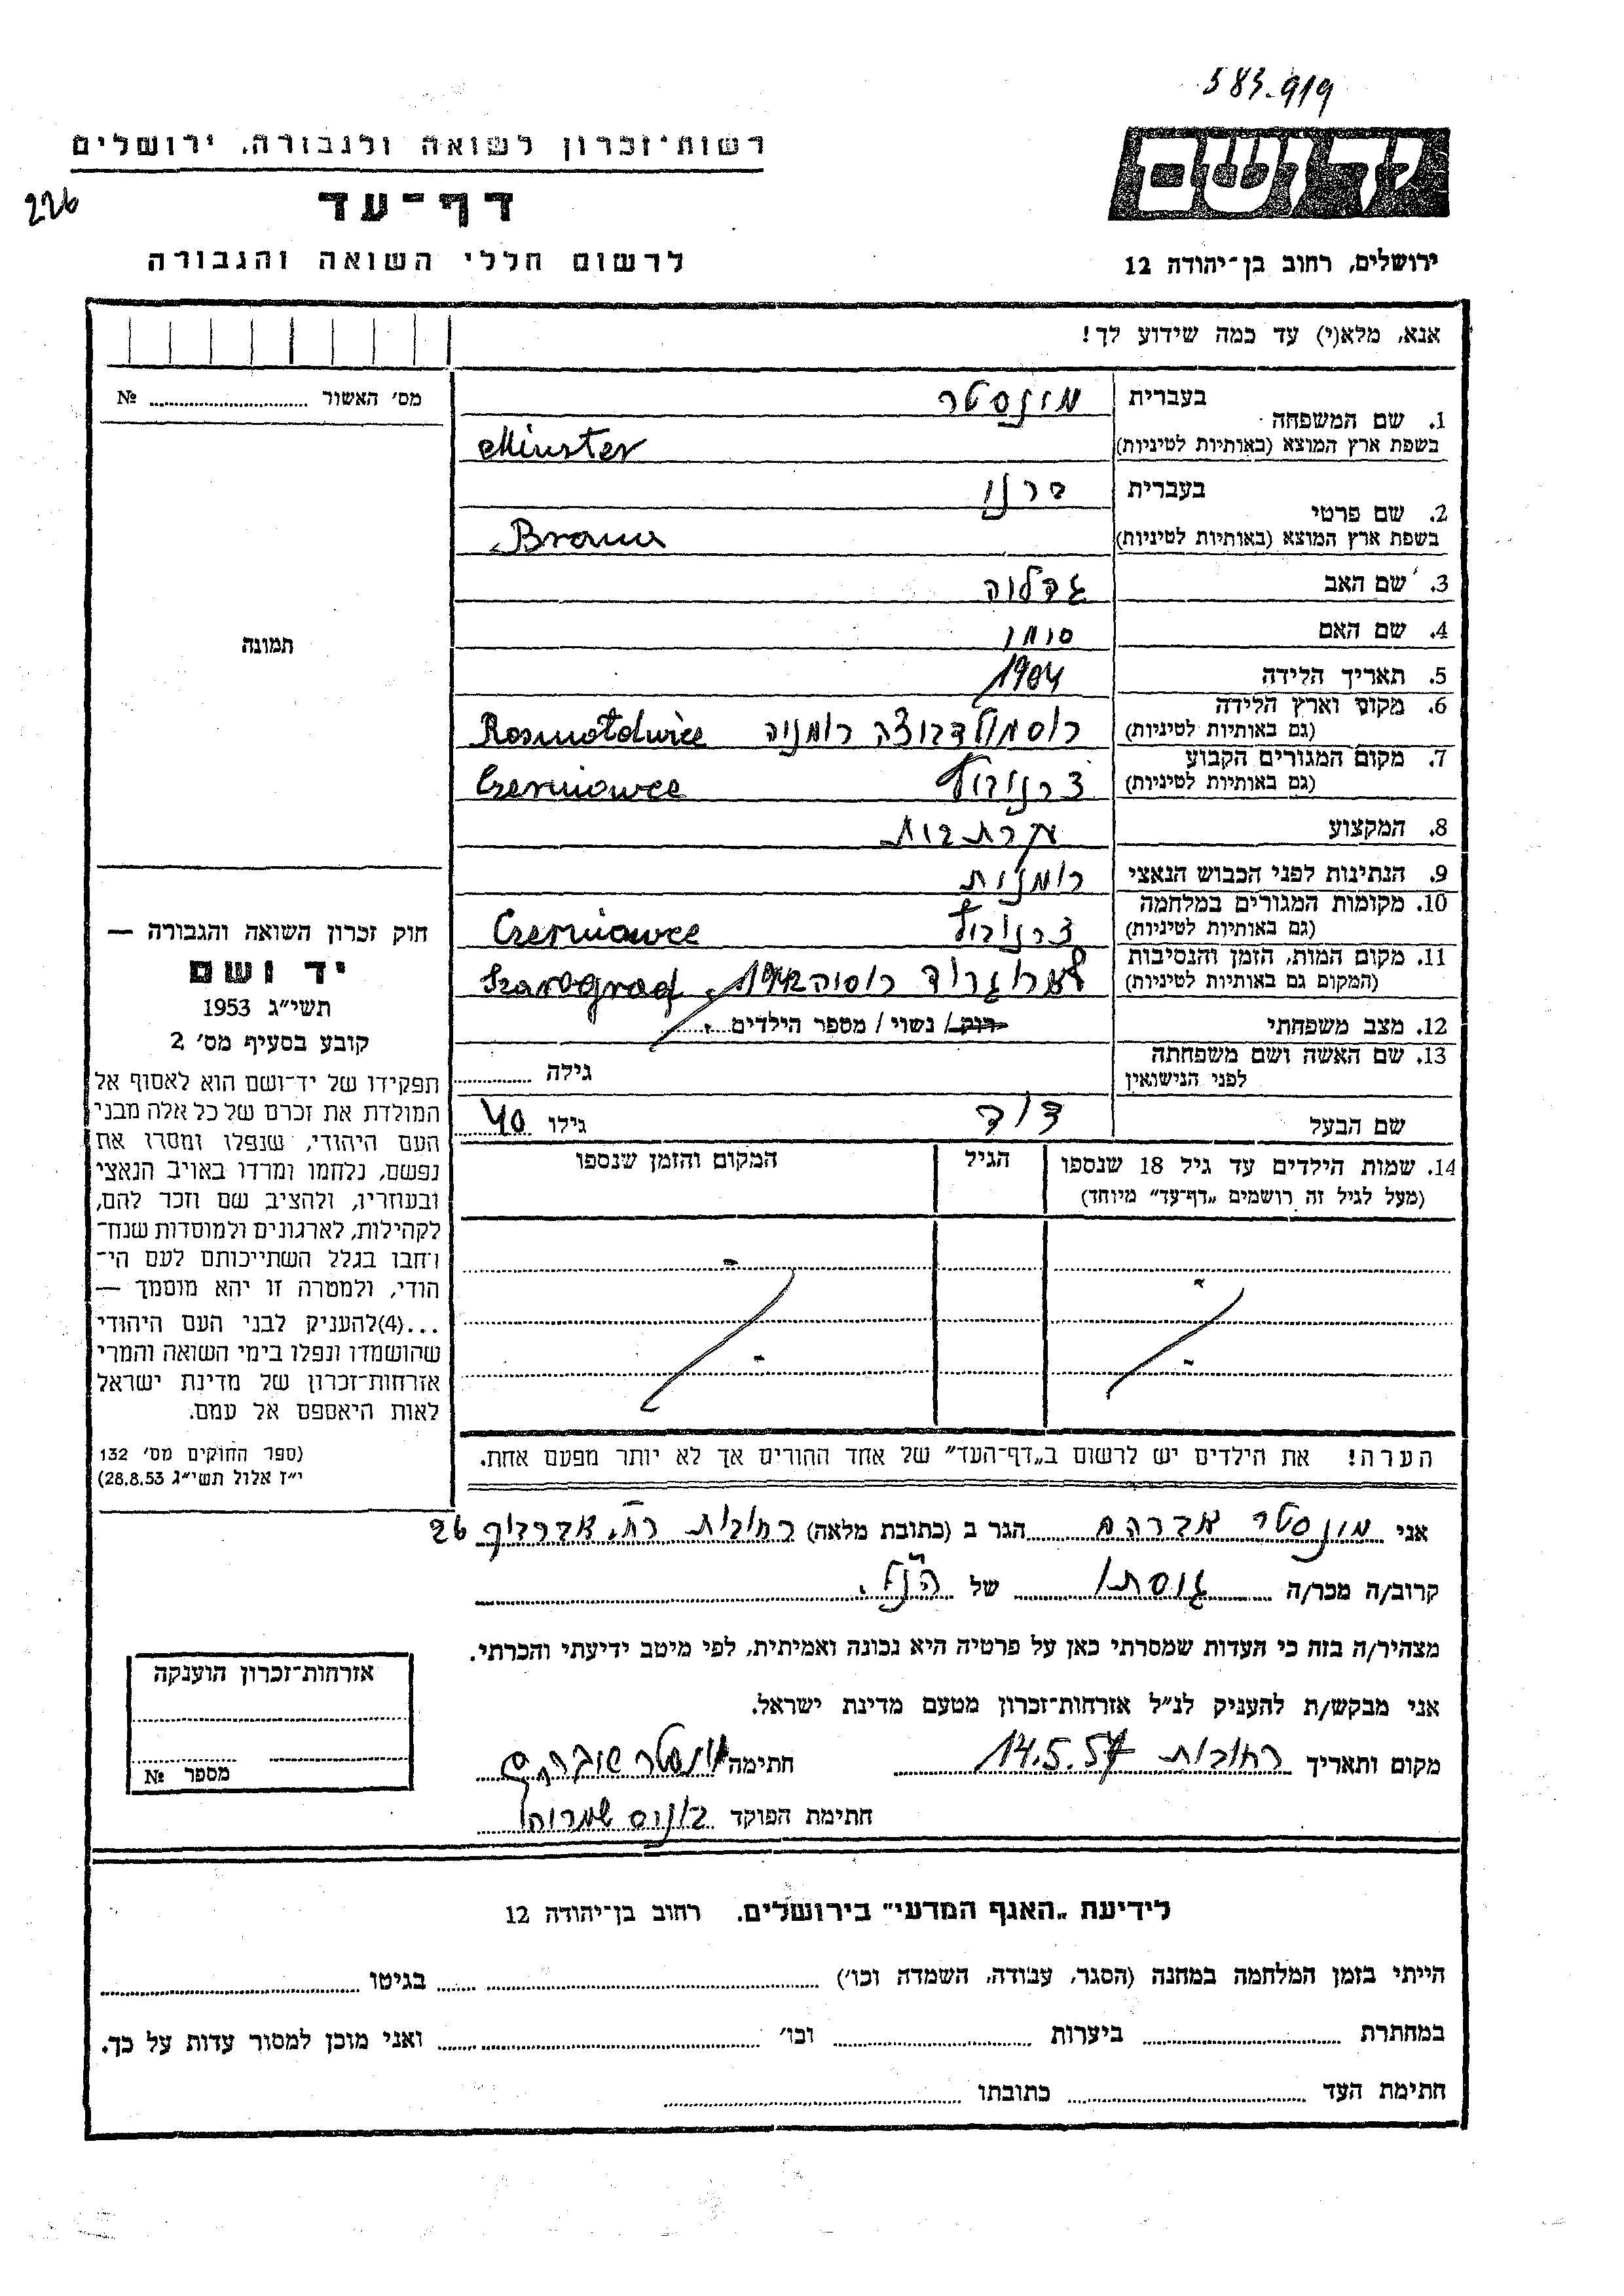 583-919
רשות־זכרון לשואה ולגבורה, ירושלים
226
דף־עד
לרשום חללי השואה והגבורה
ירושלים, רחוב בן־יהודה 12
אנא, מלא(י) עד כמה שידוע לך!
מס׳ האשור № ..........
תמונה
חוק זכרון השואה והגבורה —
יד ושם
תשי״ג 1953
קובע בסעיף מס׳ 2
תפקידו של יד־ושם הוא לאסוף אל
המולדת את זכרם של כל אלה מבני
העם היהודי, שנפלו ומסרו את
נפשם, נלחמו ומרדו באויב הנאצי
ובעוזריו, ולהציב שם וזכר להם,
לקהילות, לארגונים ולמוסדות שנח־
רחבו בגלל השתייכותם לעם הי־
הודי, ולמטרה זו יהא מוסמך —
...(4)להעניק לבני העם היהודי
שהושמדו ונפלו בימי השואה והמרי
אזרחות־זכרון של מדינת ישראל
לאות היאספם אל עמם.
(ספר החוקים מס׳ 132
י״ז אלול תשי״ג 28.8.53)
1. שם המשפחה בעברית מונסטר
בשפת ארץ המוצא (באותיות לטיניות) Münster
2. שם פרטי בעברית ברנו
בשפת ארץ המוצא (באותיות לטיניות)
3. שם האב גדלוה
4. שם האם
5. תאריך הלידה 1904
6. מקום וארץ הלידה (גם באותיות לטיניות) רומניה
7. מקום המגורים הקבוע (גם באותיות לטיניות) Czerniowce
8. המקצוע עקרת בית
9. הנתינות לפני הכבוש הנאצי רומנית
10. מקומות המגורים במלחמה (גם באותיות לטיניות) Czerniowce
11. מקום המות, הזמן והנסיבות (המקום גם באותיות לטיניות) שערוגרוד רוסיה 1942 Szarograd
12. מצב משפחתי רוק / נשוי / מספר הילדים
13. שם האשה ושם משפחתה לפני הנישואין גילה
שם הבעל דוד גילו 40
14. שמות הילדים עד גיל 18 שנספו הגיל המקום והזמן שנספו
(מעל לגיל זה רושמים „דף־עד״ מיוחד)
הערה! את הילדים יש לרשום ב„דף־העד״ של אחד ההורים אך לא יותר מפעם אחת.
אני מונסטר אברהם הגר ב (כתובת מלאה) רחובות רח׳ 26
קרוב/ה מכר/ה גיסתו של הנ״ל.
מצהיר/ה בזה כי העדות שמסרתי כאן על פרטיה היא נכונה ואמיתית, לפי מיטב ידיעתי והכרתי.
אני מבקש/ת להעניק לנ״ל אזרחות־זכרון מטעם מדינת ישראל.
מקום ותאריך רחובות 14.5.57 חתימה
חתימת הפוקד
אזרחות־זכרון הוענקה
מספר №
לידיעת „האגף המדעי״ בירושלים. רחוב בן־יהודה 12
הייתי בזמן המלחמה במחנה (הסגר, עבודה, השמדה וכו׳) .......... בגיטו ..........
במחתרת .......... ביערות .......... וכו׳ .......... ואני מוכן למסור עדות על כך.
חתימת העד .......... כתובתו ..........